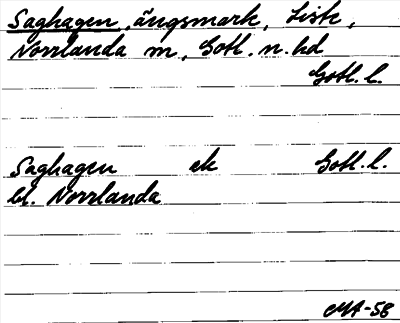 Saghagen, ängsmark, Liste,
Norrlanda m, Gotl. n. hd
Gotl. l.
Saghagen ek Gotl. l.
bl. Norrlanda
MA-58